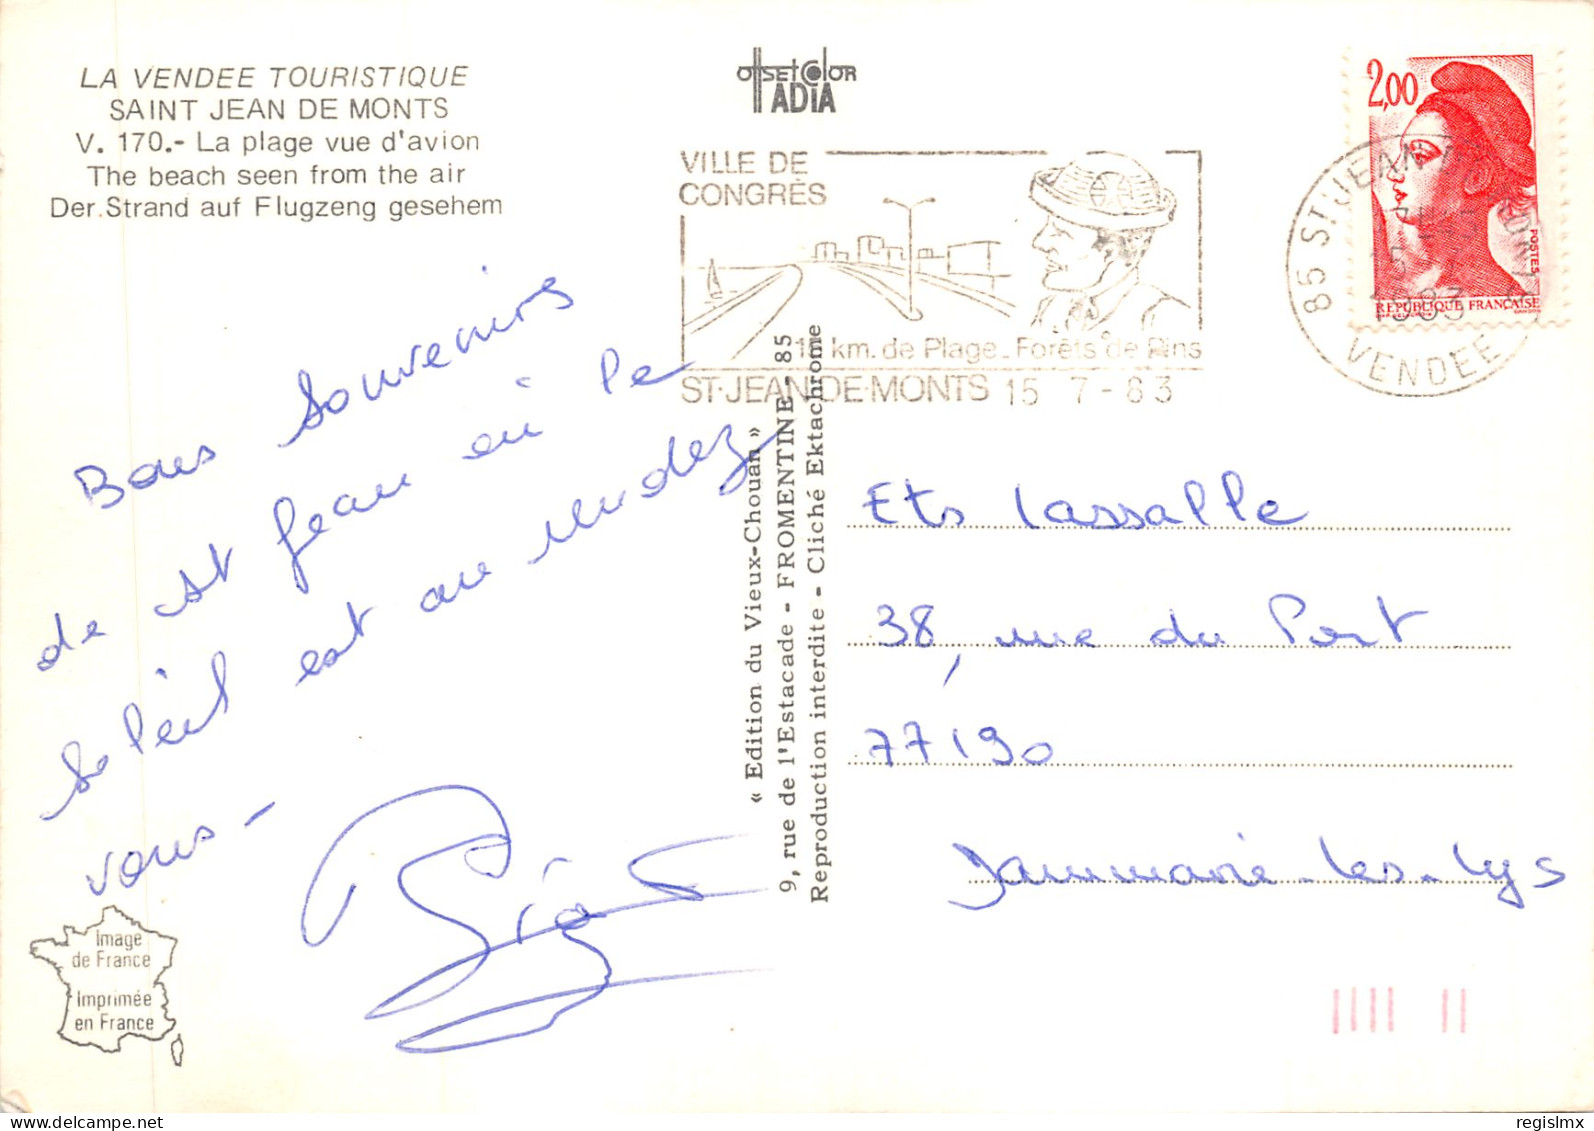 LA VENDEE TOURISTIQUE
SAINT JEAN DE MONTS
V. 170.- La plage vue d'avion
The beach seen from the air
Der Strand auf Flugzeng gesehem
OffSET COlOR
ADIA
VILLE DE
CONGRÈS
km. de Plage_Forêts de Pins
ST-JEAN-DE-MONTS 15 7-83
2,00
POSTES
REPUBLIQUE FRANÇAISE
85 ST-JEAN
1983
VENDEE
Bons Souvenirs
de St Jean où le
Soleil est au rendez
vous -
« Edition du Vieux-Chouan »
9, rue de l'Estacade - FROMENTINE - 85
Reproduction interdite - Cliché Ektachrome
Ets Lassalle
38, rue du Port
77190
Dammarie-les-Lys
Image
de France
Imprimée
en France
regislmx